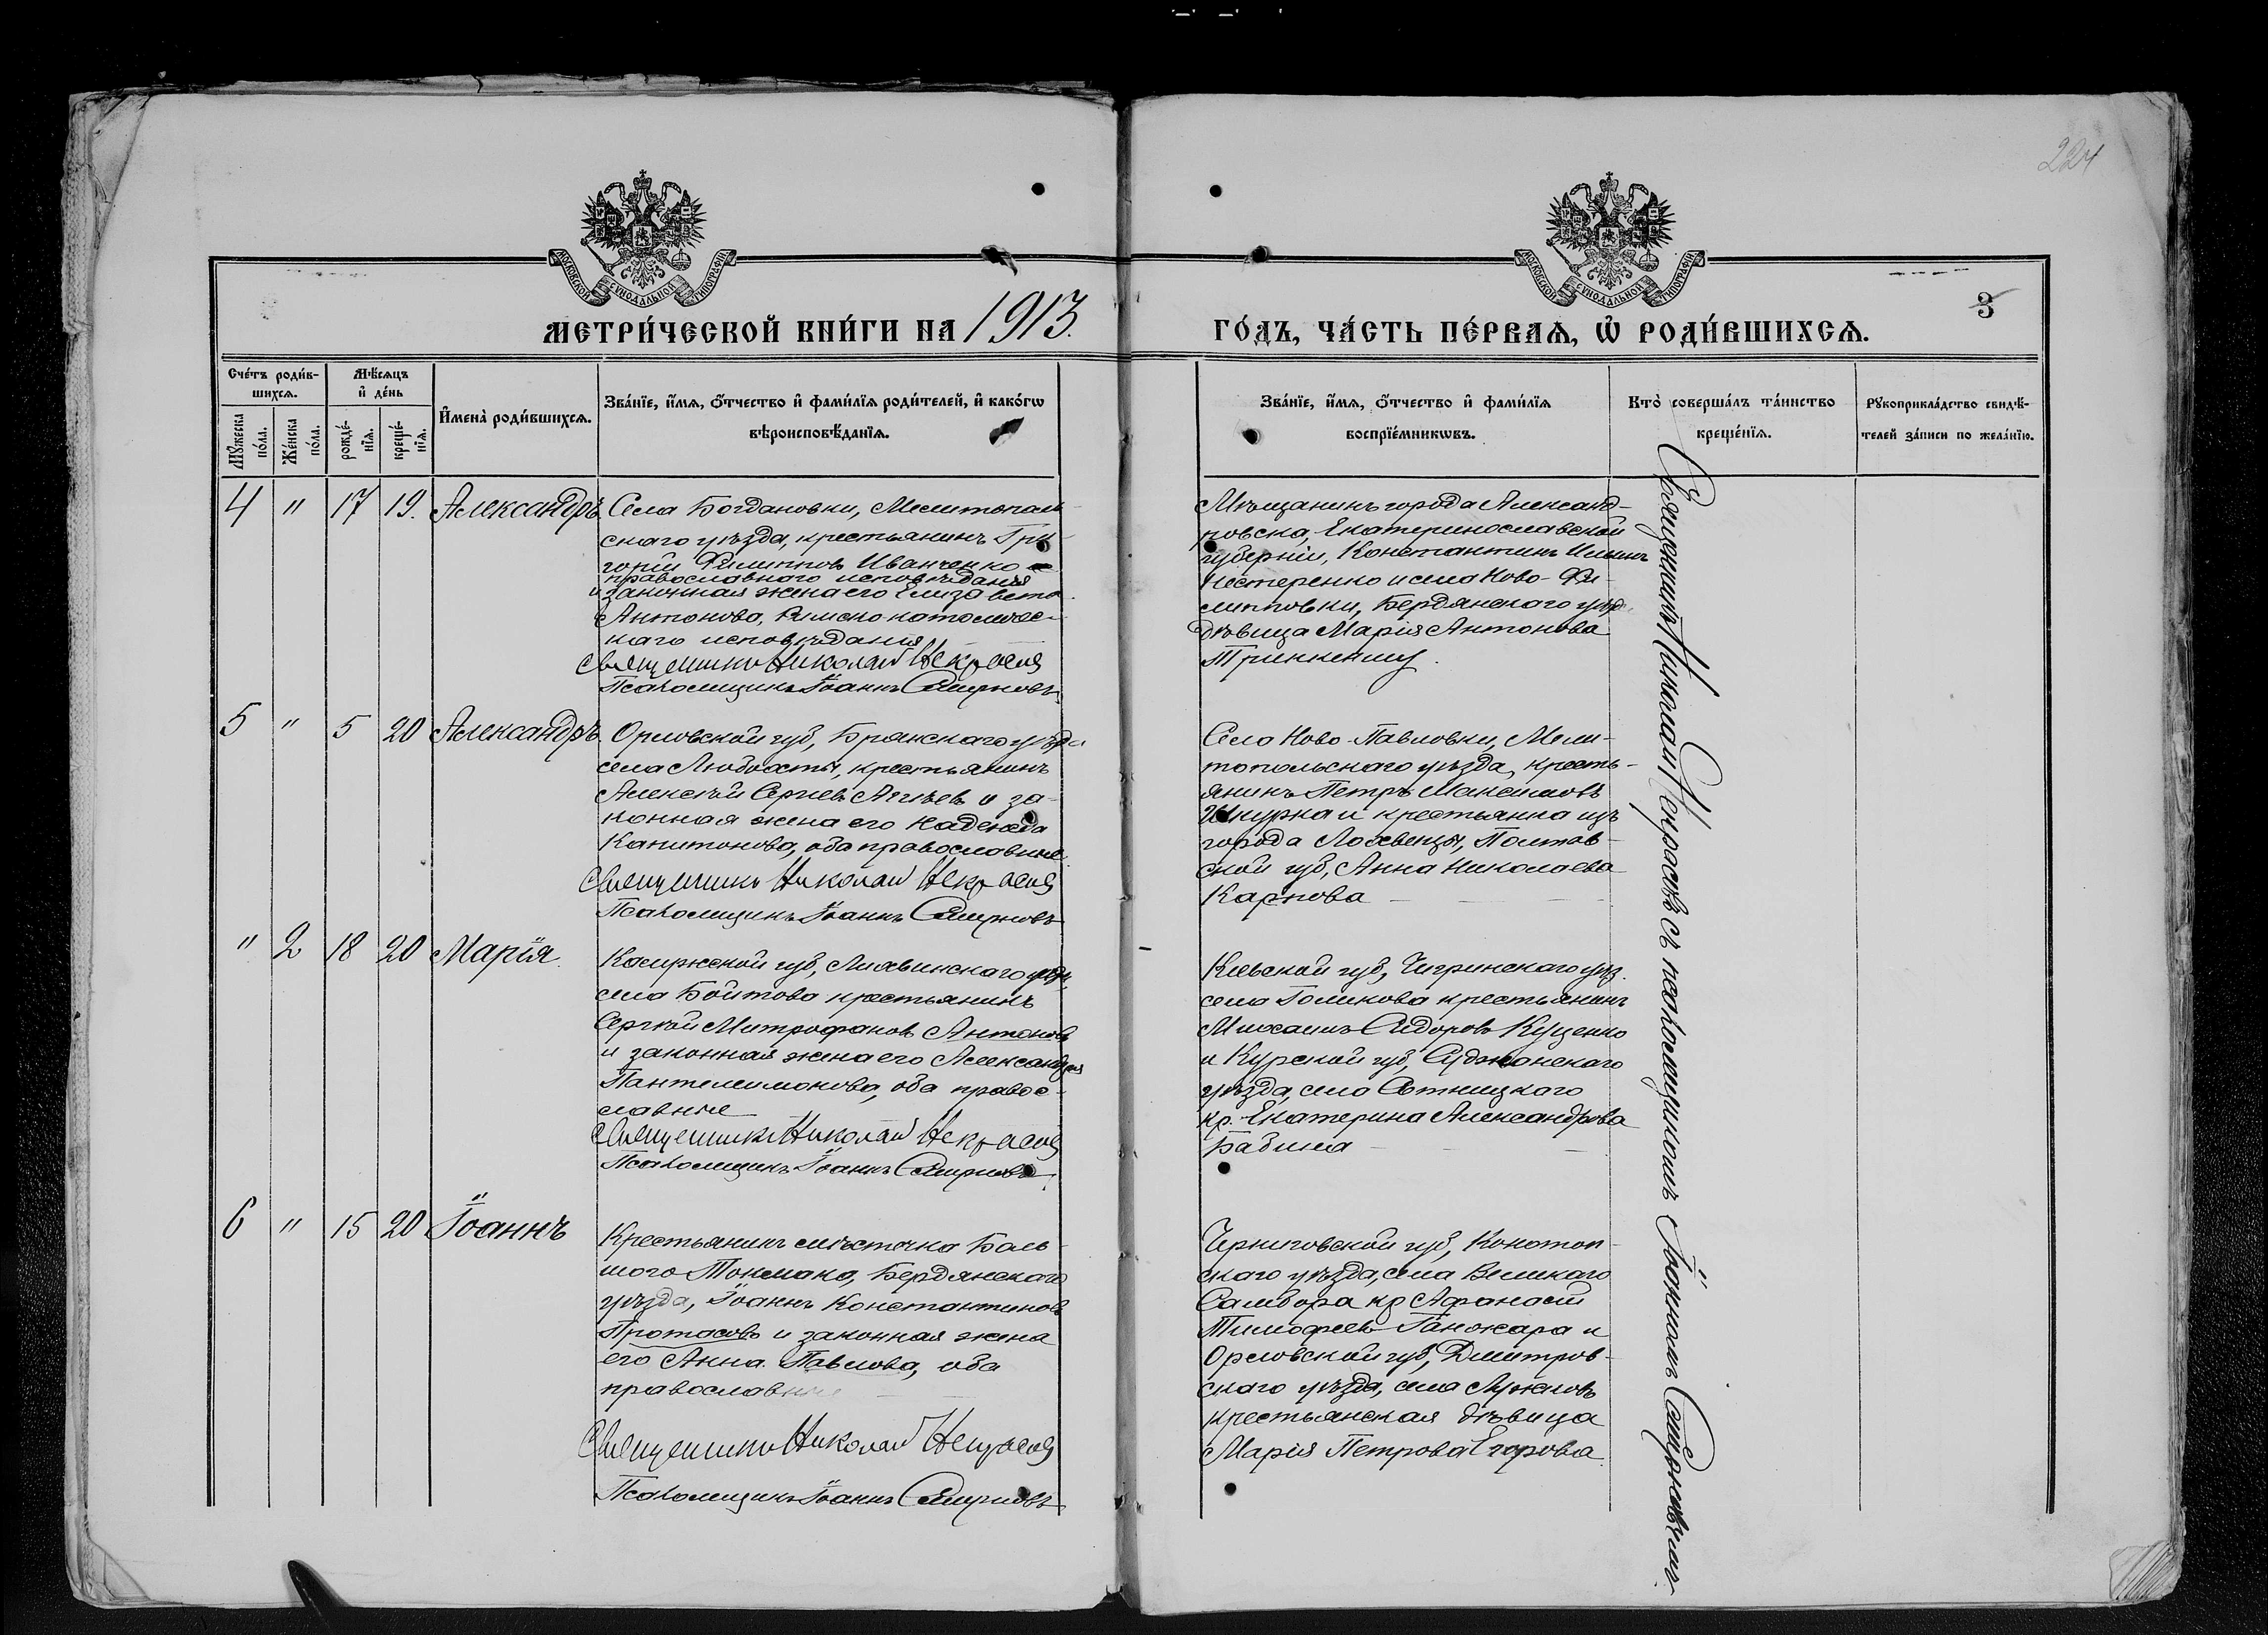 224
МОСКОВСКОЙ СѴНОДАЛЬНОЙ ТИПОГРАФІИ
МОСКОВСКОЙ СѴНОДАЛЬНОЙ ТИПОГРАФІИ
3
МЕТРИ́ЧЕСКОЙ КНИ́ГИ НА 1913.
ГО́ДЪ, ЧА́СТЬ ПЕ́РВАѦ, Ѽ РОДИ́ВШИХСѦ.
Сче́тъ роди́в-
шихсѧ.
Мꙋжеска по́ла.
Же́нска по́ла.
Мѣ́сѧцъ
и҆ де́нь
рожде́-нїѧ.
креще́-нїѧ.
И҆мена̀ роди́вшихсѧ.
Зва́нїе, и҆́мѧ, ѻ҆́тчество и҆ фами́лїѧ роди́телей, и҆ како́гѡ
вѣроисповѣ́данїѧ.
Зва́нїе, и҆́мѧ, ѻ҆́тчество и҆ фами́лїѧ
воспрїе́мникѡвъ.
Кто̀ соверша́лъ та́инство
креще́нїѧ.
Рꙋкоприкла́дство свидѣ́-
телей за́писи по жела́нїю.
4 " 17 19. Александръ
Села Богдановки, Мелитополь-
скаго уѣзда, крестьянинъ Гри-
горій Филипповъ Иванченко
православнаго исповѣданія
и законная жена его Елизавета
Антонова, Римско-католичес-
каго исповѣданія
Священникъ Николай Некрасов
Псаломщикъ Іоаннъ Смирновъ
Мѣщанинъ города Александ-
ровска, Екатеринославской
губерніи, Константинъ Ильинъ
Нестеренко и села Ново-Фи-
липповки, Бердянскаго уѣзд.
дѣвица Марія Антонова
5 " 5 20 Александръ
Орловской губ, Брянскаго уѣзда
села Любохты, крестьянинъ
Алексѣй Сергѣевъ и за-
конная жена его Надежда
Капитонова, оба православные
Священникъ Николай Некрасов
Псаломщикъ Іоаннъ Смирновъ
Села Ново-Павловки, Мели-
топольскаго уѣзда, кресть-
янинъ Петръ Максимовъ
Шкурка и крестьянка изъ
города Лохвицы, Полтав-
ской губ, Анна Николаева
Карпова
" 2 18 20 Марія.
Калужской губ, Лихвинскаго уѣзд.
села Бойтова крестьянинъ
Сергѣй Митрофановъ Антоновъ
и законная жена его Александра
Пантелеимонова, оба правос-
лавные
Священникъ Николай Некрасов
Псаломщикъ Іоаннъ Смирновъ.
Кіевской губ, Чигринскаго уѣз.
села Голикова крестьянинъ
Михаилъ Сидоровъ Куценко
и Курской губ, Суджанскаго
уѣзда, села Сотницкаго
кр. Екатерина Александрова
Бабина
6 " 15 20 Іоаннъ
Крестьянинъ мѣстечка Боль-
шого Токмака, Бердянскаго
уѣзда, Іоаннъ Константиновъ
Протасовъ и законная жена
его Анна Павлова, оба
православные
Священникъ Николай Некрасов
Псаломщикъ Іоаннъ Смирновъ
Черниговской губ, Конотоп-
скаго уѣзда, села Великаго
Самбора кр Афанасій
Тимофеевъ Ганжара и
Орловской губ, Дмитров-
скаго уѣзда, села Лужковъ
крестьянская дѣвица
Марія Петрова Егорова.
Священникъ Николай Некрасовъ съ псаломщикомъ Іоанномъ Смирновымъ.